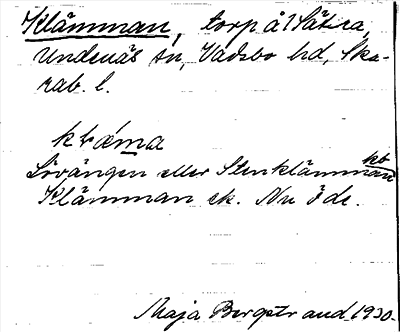 Klämman, torp å 1 Sätra,
Undenäs sn, Vadsbo hd, Ska-
rab. l.
Lövängen eller Stenklämman kb
Klämman ek. Nu öde.
Maja Bergstrand 1930.